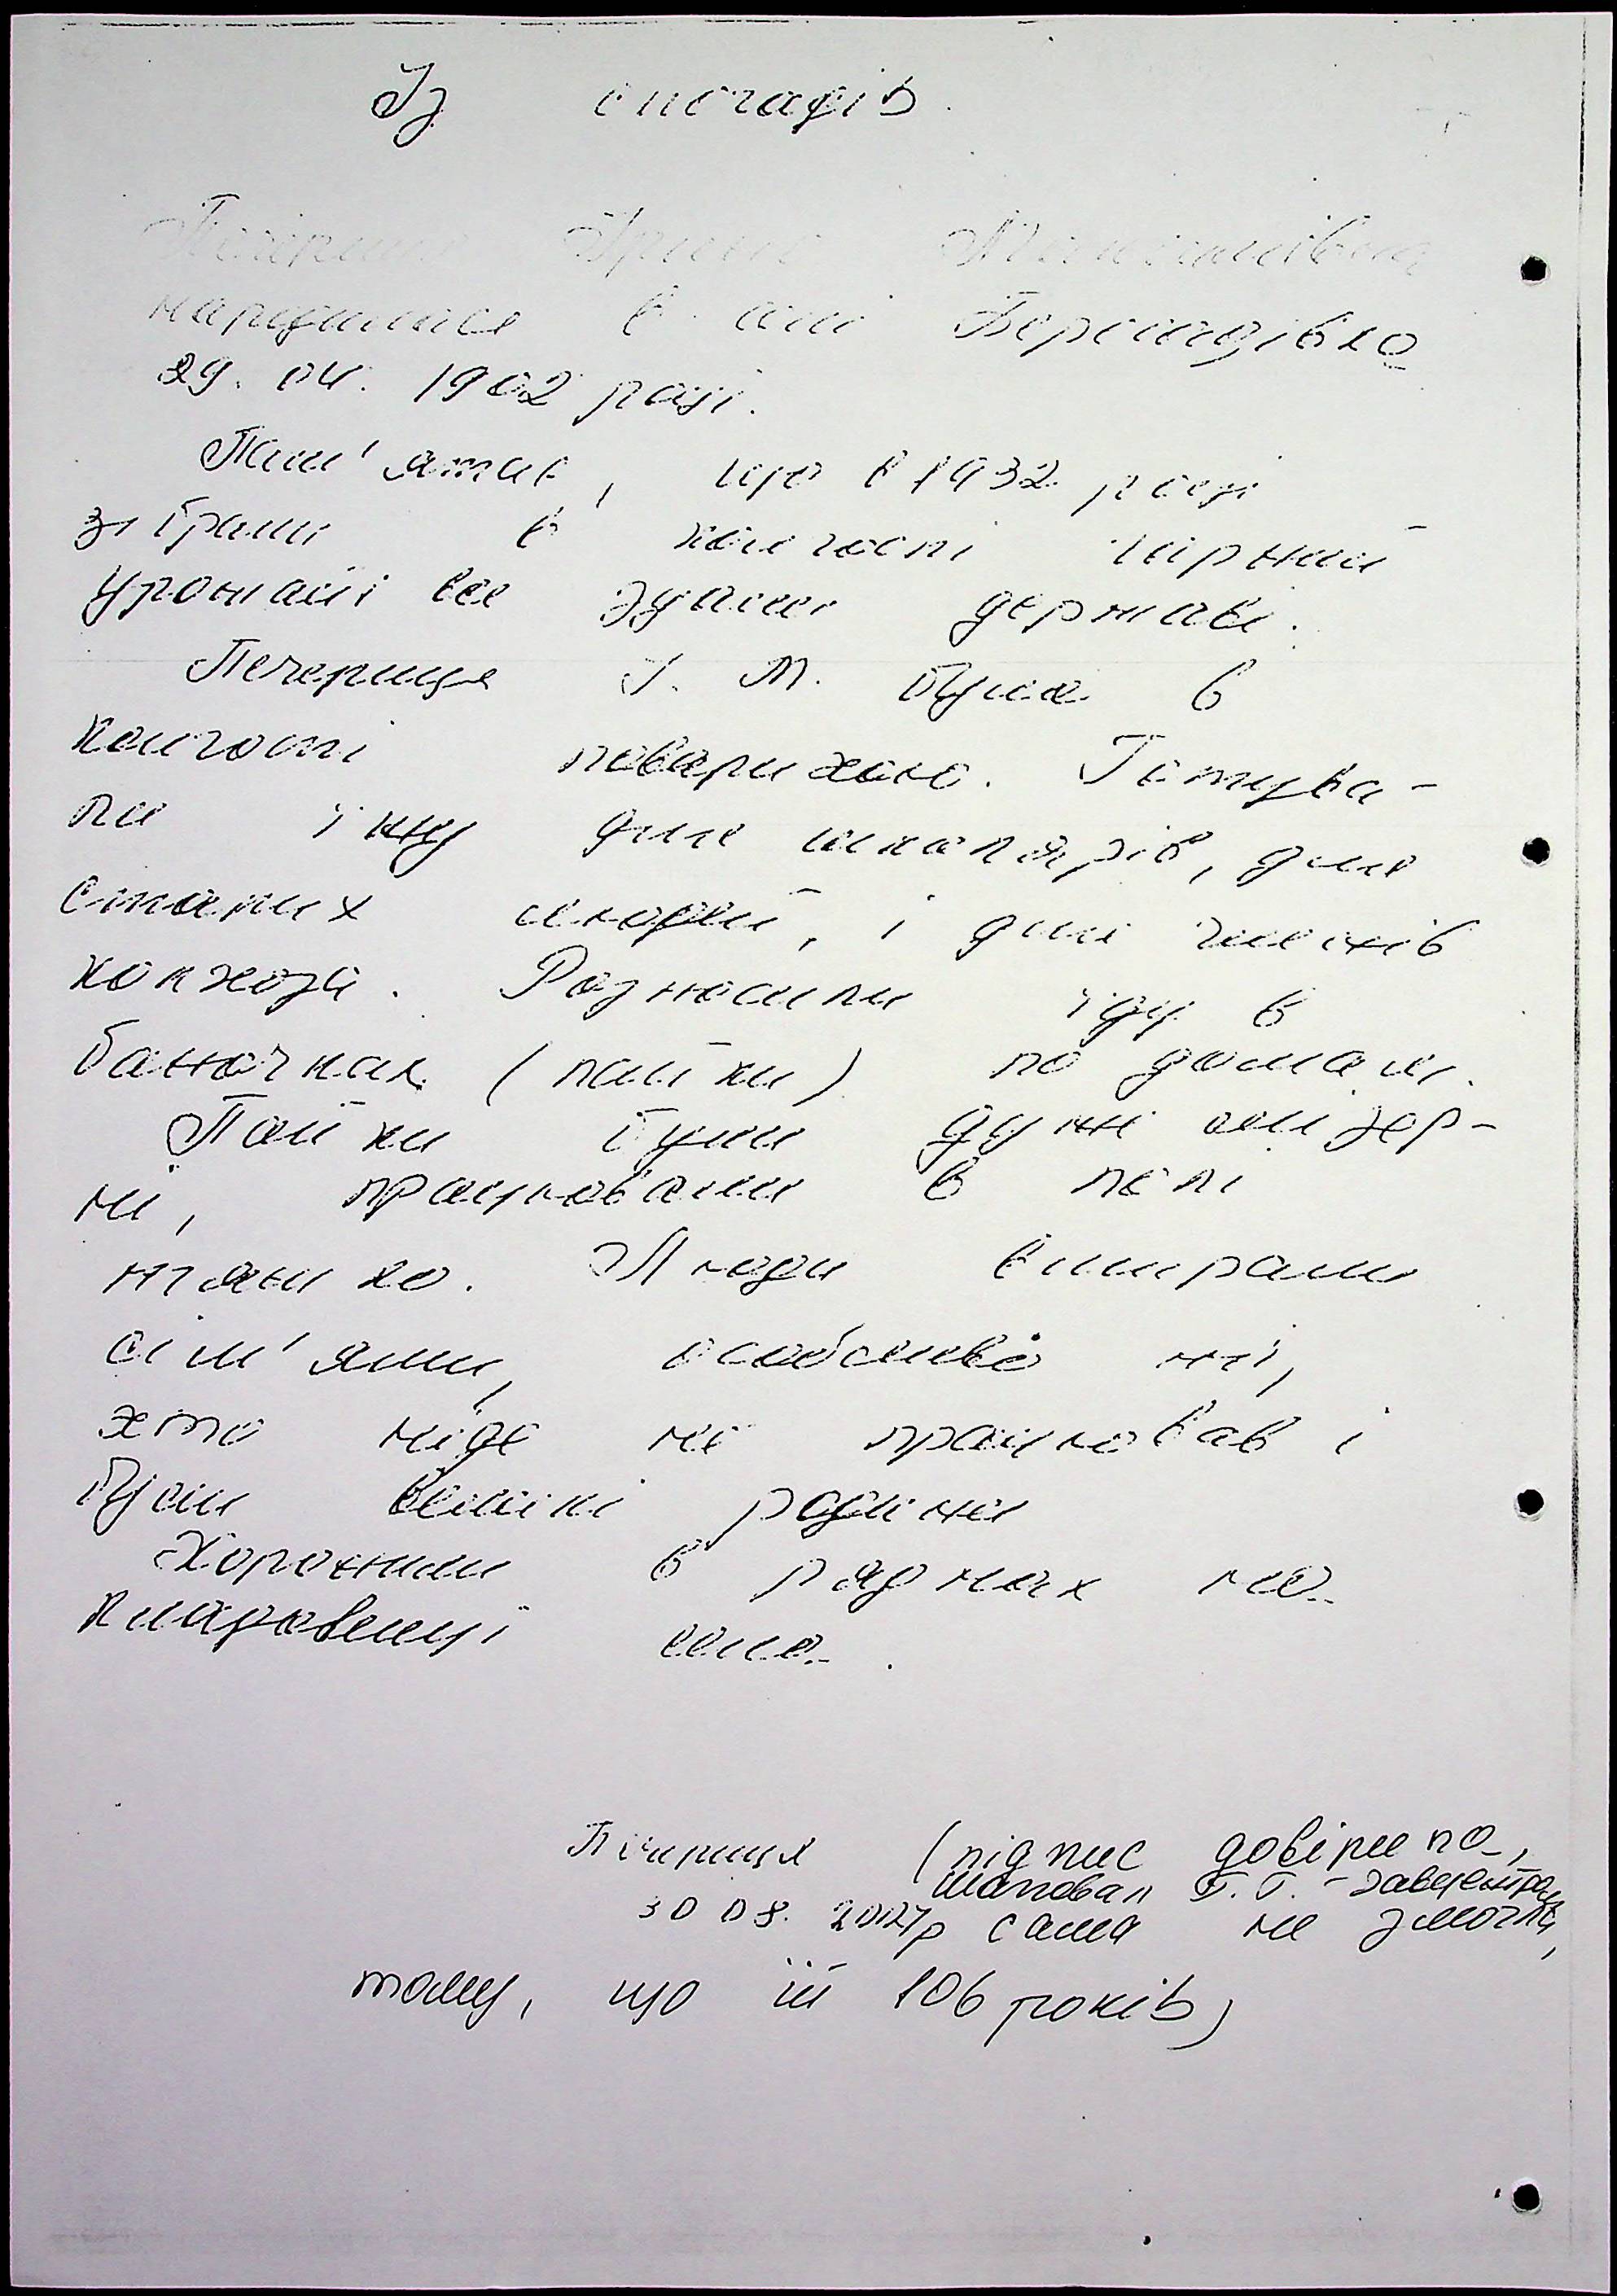 Із спогадів.
Печериця Ірина
народилася в селі
29. 04. 1902 році.
Пам'ятає, що в 1932 році
зібрали в колгоспі гарний
урожай і все здали державі.
Печериця І. М. була в
колгоспі поварихою. Готува-
ли їжу для школярів, для
старих людей, і для членів
колхоза. Разносили їду в
баночках (пайки) по домам.
Пайки були дужі мізер-
ні, працювали в полі
тяжко. Люди вмирали
сім'ями, особливо ті,
хто ніде не працював і
були великі родини
Хоронили в ряднах на
кладовищі села.
Печериця (підпис довірено,
Шаповал Г. Г. -
30 08. 2007р сама не змогла,
тому, що їй 106 років)